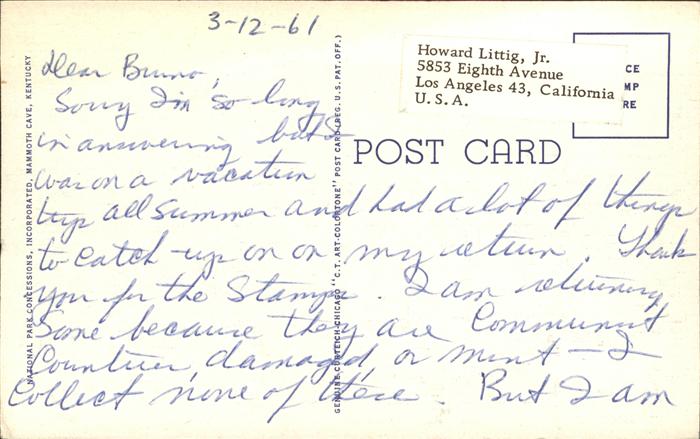 3-12-61
Dear Bruno,
Sorry I'm so long
in answering but I
was on a vacation
trip all summer and had a lot of things
to catch-up on on my return. Thank
you for the Stamps. I am returning
Some because they are Communist
Countries, damaged, or mint - I
Collect none of these. But I am
Howard Littig, Jr.
5853 Eighth Avenue
Los Angeles 43, California
U. S. A.
CE
MP
RE
POST CARD
NATIONAL PARK CONCESSIONS, INCORPORATED, MAMMOTH CAVE, KENTUCKY
GENUINE CURTEICH-CHICAGO "C.T. ART-COLORTONE" POST CARD (REG. U. S. PAT. OFF.)